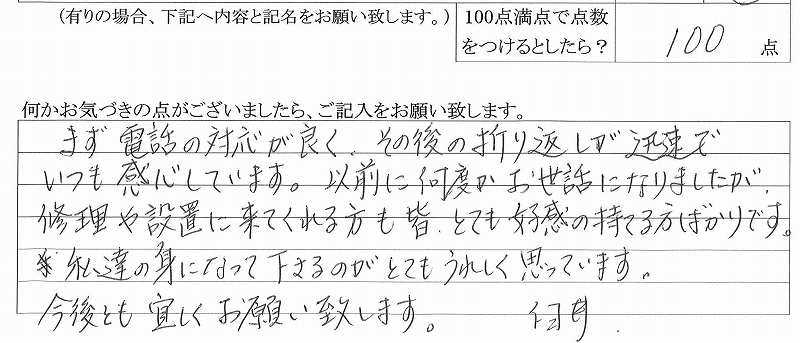 (有りの場合、下記へ内容と記名をお願い致します。)
100点満点で点数
をつけるとしたら？
100 点
何かお気づきの点がございましたら、ご記入をお願い致します。
まず電話の対応が良く、その後の折り返しが迅速で
いつも感心しています。以前に何度かお世話になりましたが、
修理や設置に来てくれる方も皆、とても好感の持てる方ばかりです。
私達の身になって下さるのがとてもうれしく思っています。
今後とも宜しくお願い致します。